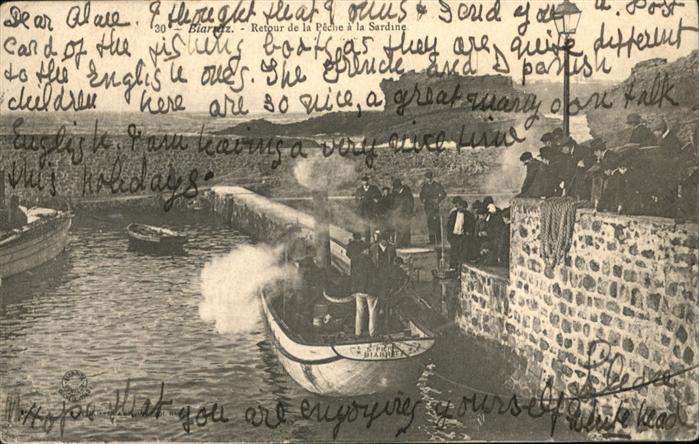 Dear Alan. I thought that I must send you a Post
30 - Biarritz. - Retour de la Pêche à la Sardine
card of the fishing boats as they are quite different
to the English ones. The French and Spanish
children here are so nice, a great many can talk
English. I am having a very nice time
this holidays.
BIARRITZ
Hope that you are enjoying yourself
Whitehead